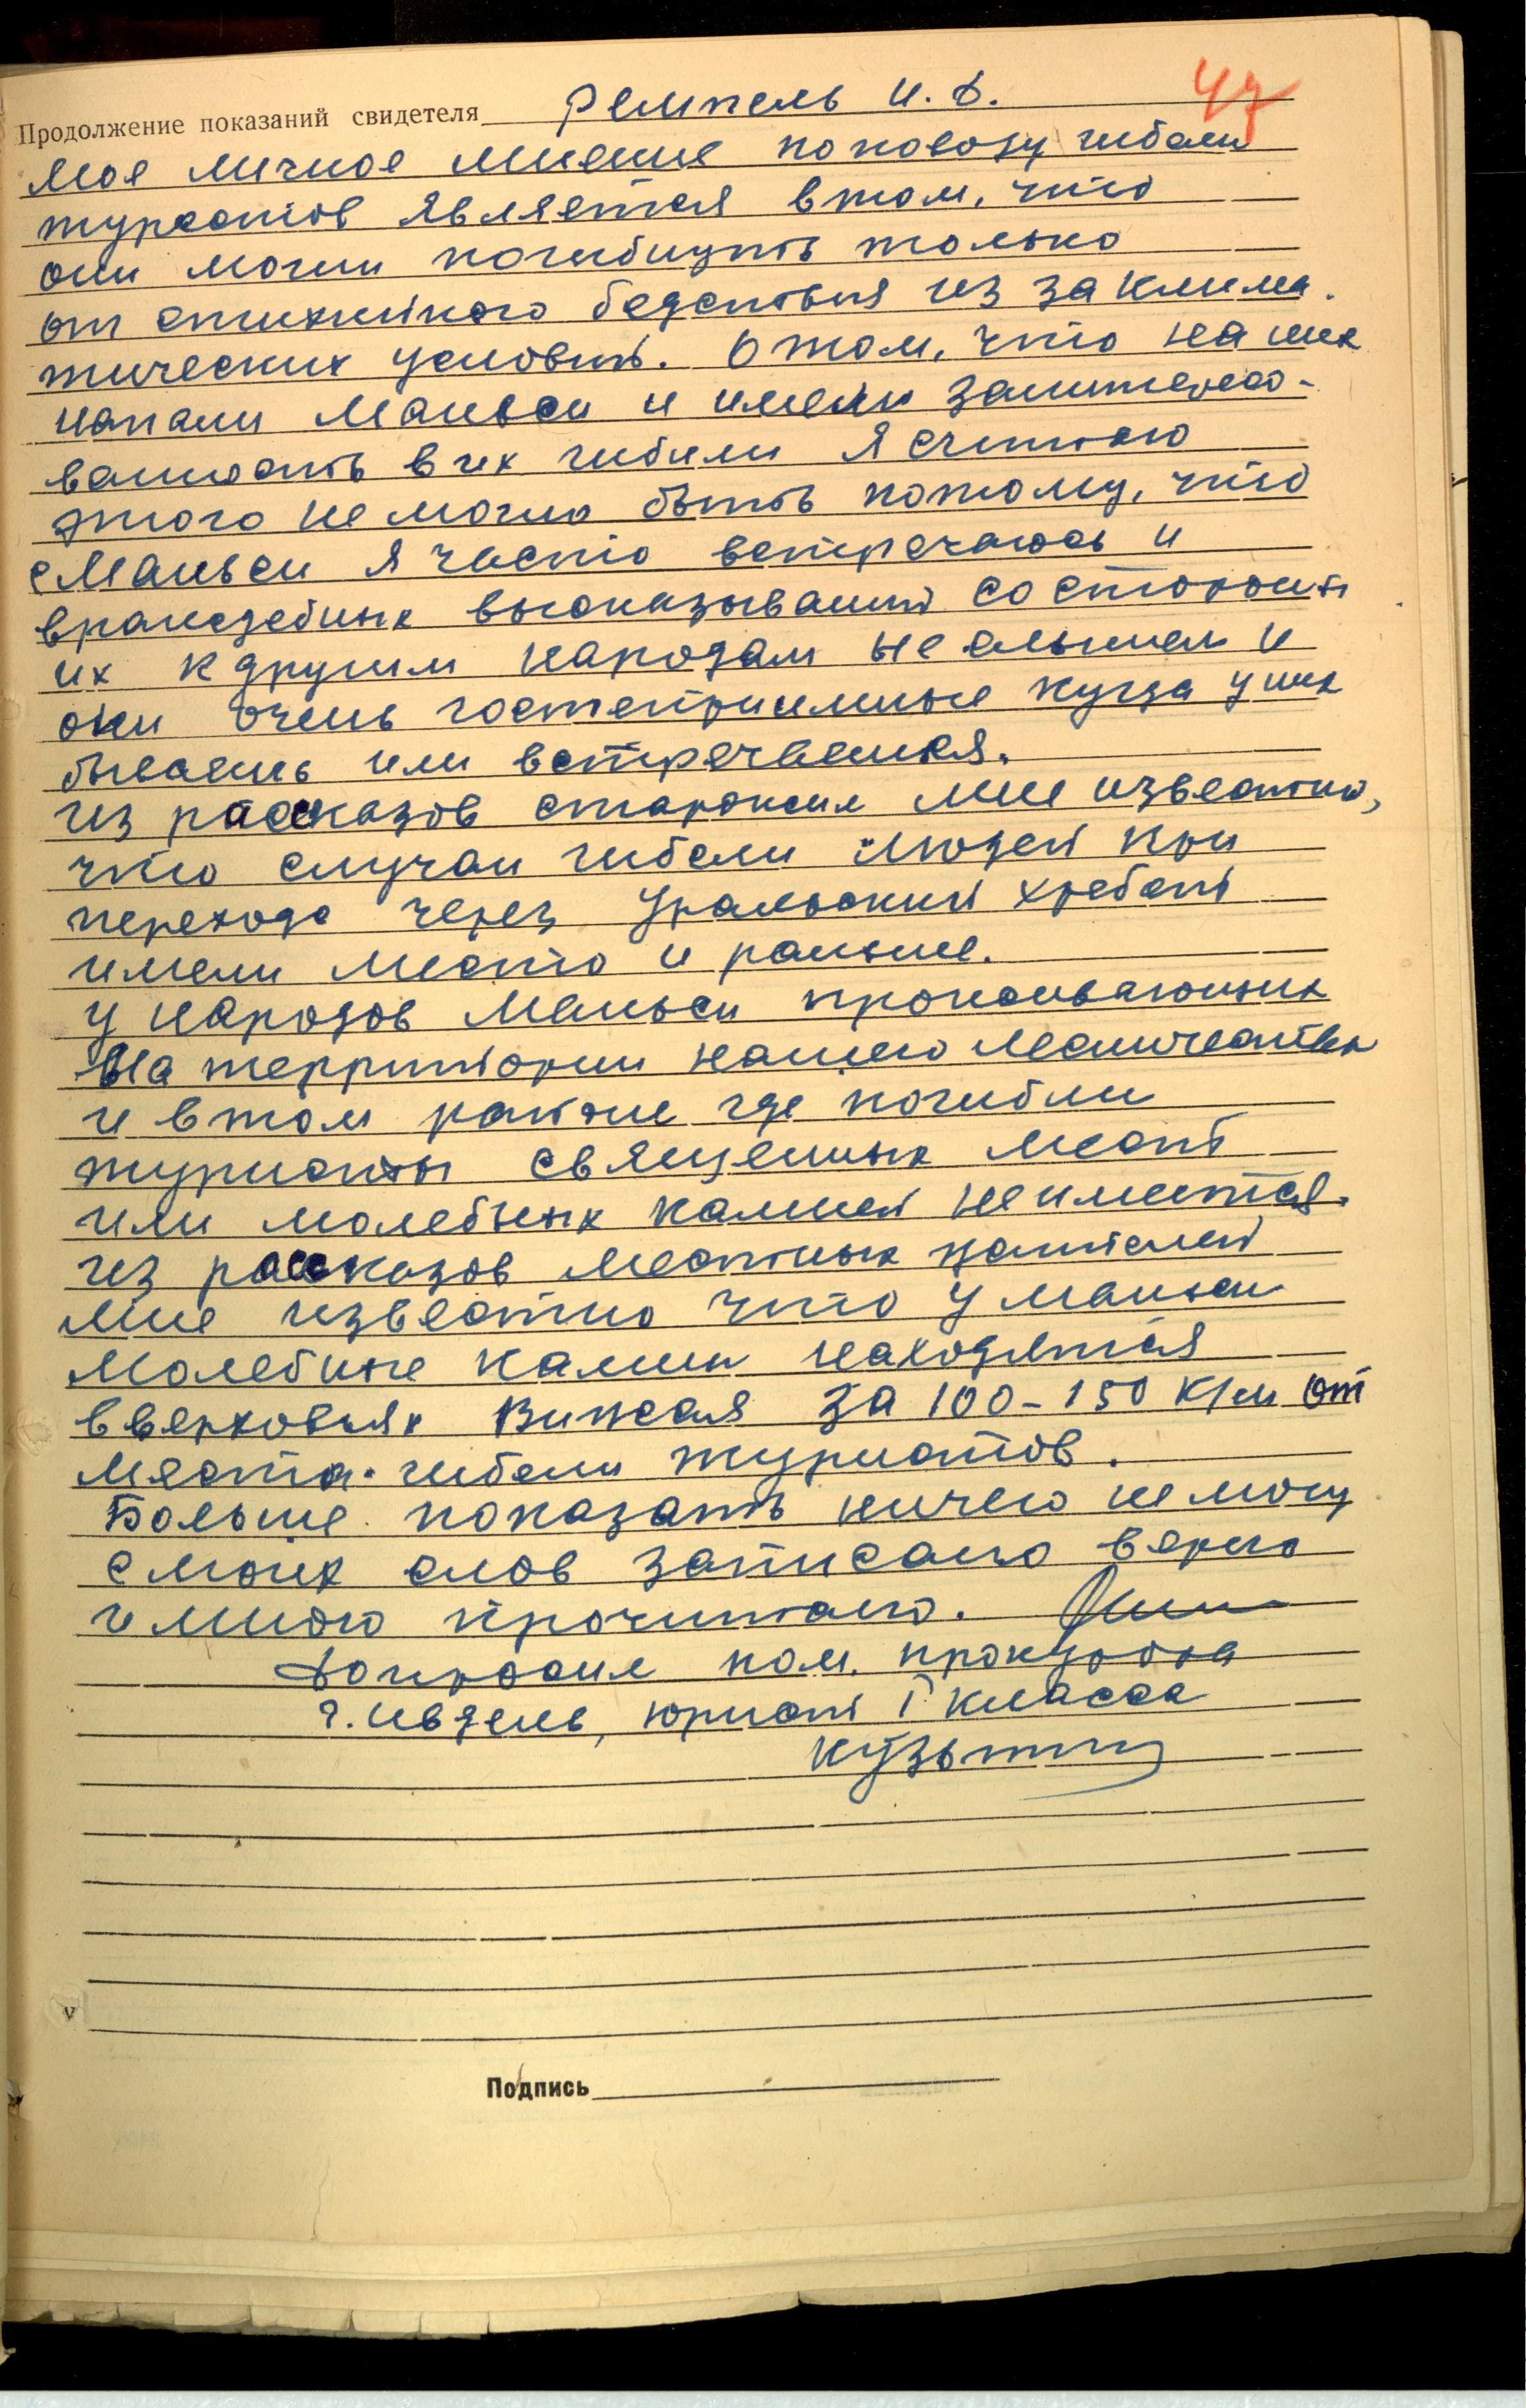 47
Продолжение показаний свидетеля Ремпель И.Д.
Мое личное мнение по поводу гибели
туристов является в том, что
они могли погибнуть только
от стихийного бедствия из за клима-
тических условий. О том, что на них
напали Маньси и имели заинтересо-
ванность в их гибели я считаю
этого не могло быть потому, что
с Маньси я часто встречаюсь и
враждебных высказываний со стороны
их к другим народам не слышал и
они очень гостеприимные куда у них
бываешь или встречаешся.
Из рассказов старожил мне известно,
что случаи гибели людей при
переходе через Уральский хребет
имели место и раньше.
У народов Маньси проживающих
на территории нашего лесничества
и в том районе где погибли
туристы священных мест
или молебных камней не имеется.
Из рассказов местных жителей
мне известно что у маньси
молебные камни находятся
в верховьях Вижая за 100-150 к/м от
места гибели туристов.
Больше показать ничего не могу
с моих слов записано верно
и мною прочитано.
Допросил пом. прокурора
г. Ивдель, юрист I класса
Кузьмин
v
Подпись